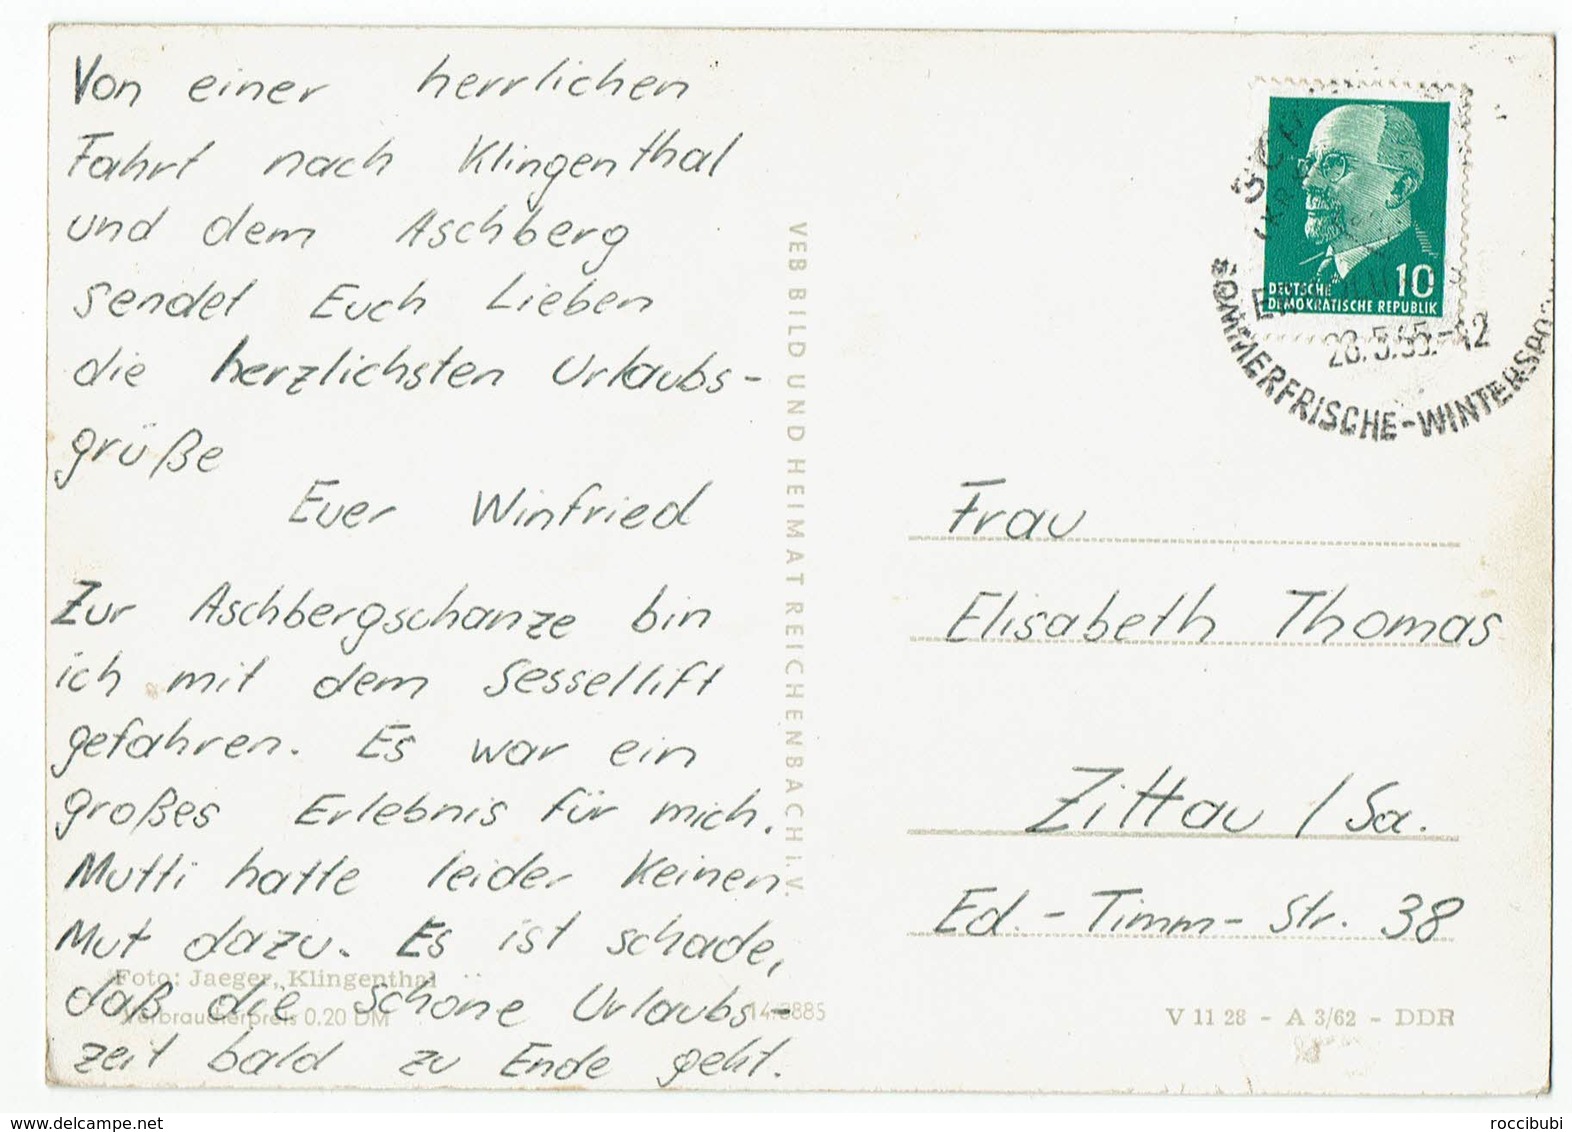 Von einer herrlichen
Fahrt nach Klingenthal
und dem Aschberg
sendet Euch Lieben
die herzlichsten Urlaubs-
grüße
Euer Winfried
Zur Aschbergschanze bin
ich mit dem Sessellift
gefahren. Es war ein
großes Erlebnis für mich.
Mutti hatte leider keinen
Mut dazu. Es ist schade,
daß die schöne Urlaubs-
zeit bald zu Ende geht.
Foto: Jaeger, Klingenthal
Verbraucherpreis 0.20 DM
VEB BILD UND HEIMAT REICHENBACH i. V.
10
DEUTSCHE
DEMOKRATISCHE REPUBLIK
28.5.65.-12
SOMMERFRISCHE-WINTERSPO
Frau
Elisabeth Thomas
Zittau / Sa.
Ed.-Timm-Str. 38
V 11 28 - A 3/62 - DDR
www.delcampe.net
roccibubi